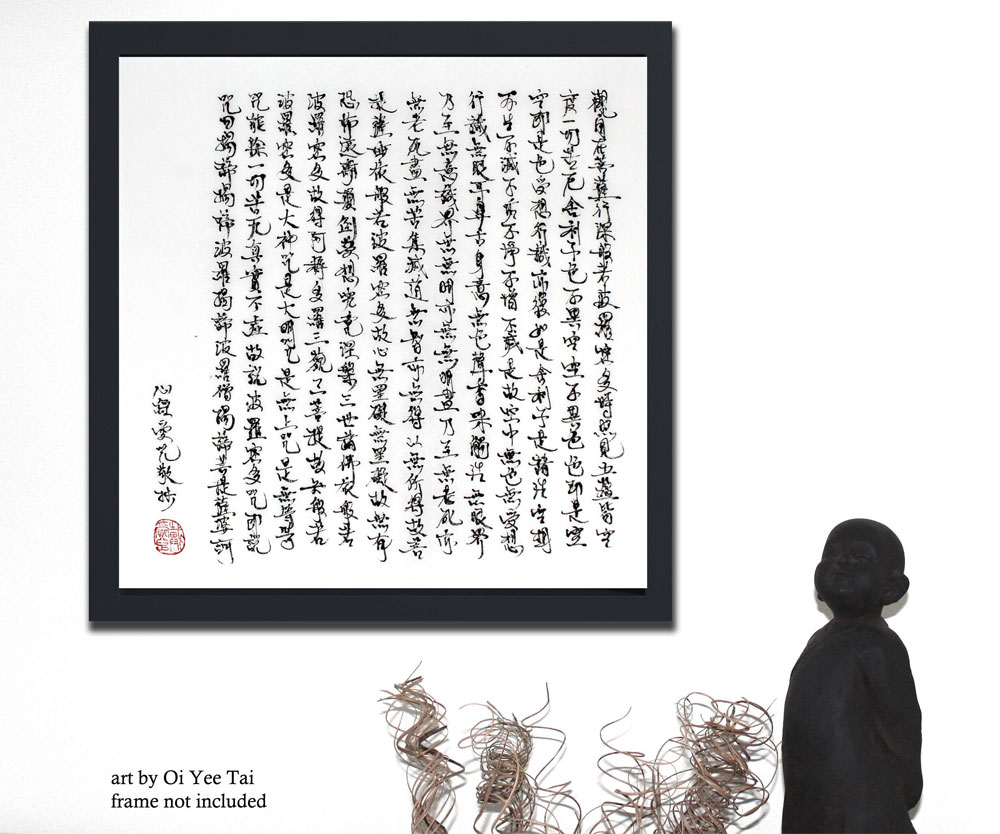 觀自在菩薩行深般若波羅蜜多時照見五蘊皆空
度一切苦厄舍利子色不異空空不異色色即是空
空即是色受想行識亦復如是舍利子是諸法空相
不生不滅不垢不淨不增不減是故空中無色無受想
行識無眼耳鼻舌身意無色聲香味觸法無眼界
乃至無意識界無無明亦無無明盡乃至無老死亦
無老死盡無苦集滅道無智亦無得以無所得故菩
提薩埵依般若波羅蜜多故心無罣礙無罣礙故無有
恐怖遠離顛倒夢想究竟涅槃三世諸佛依般若
波羅蜜多故得阿耨多羅三藐三菩提故知般若
波羅蜜多是大神咒是大明咒是無上咒是無等等
咒能除一切苦厄真實不虛故說波羅蜜多咒即說
咒曰揭諦揭諦波羅揭諦波羅僧揭諦菩提薩婆訶
心經愛敬抄
art by Oi Yee Tai
frame not included